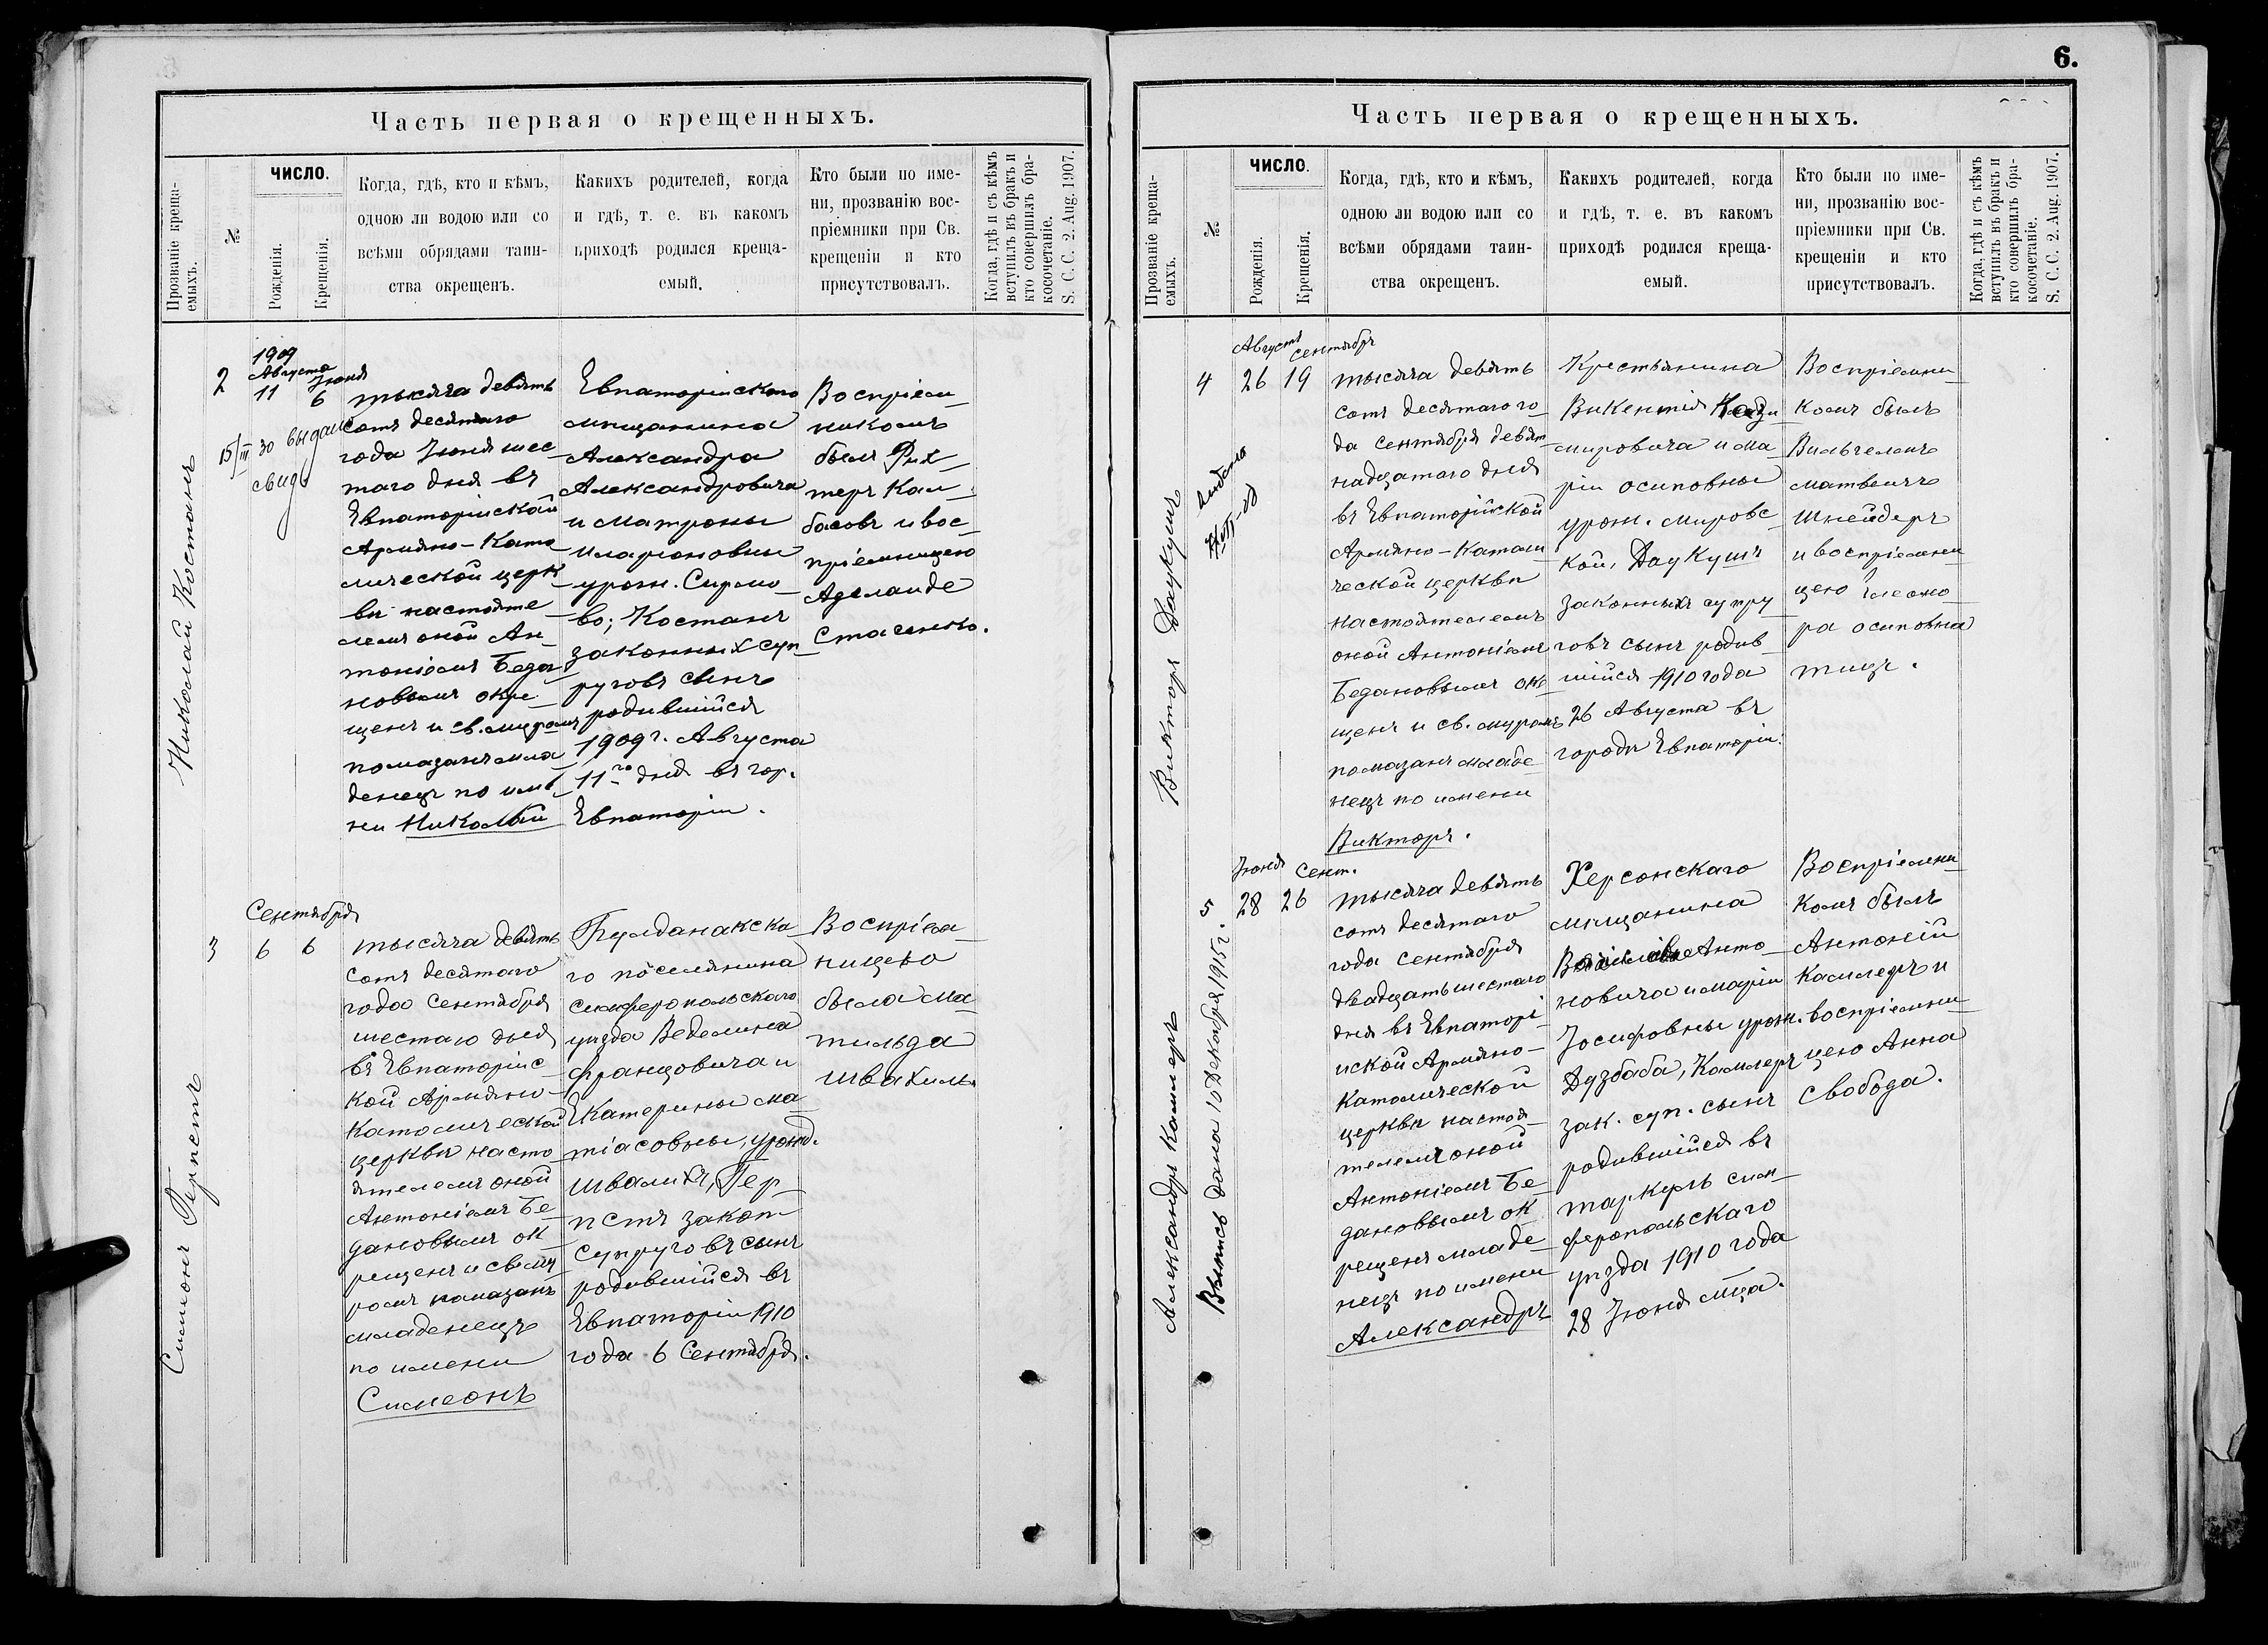 6.
Часть первая о крещенныхъ.
Прозваніе креща-
емыхъ.
№
ЧИСЛО.
Рожденія.
Крещенія.
Когда, гдѣ, кто и кѣмъ,
одною ли водою или со
всѣми обрядами таин-
ства окрещенъ.
Какихъ родителей, когда
и гдѣ, т. е. въ какомъ
приходѣ родился креща-
емый.
Кто были по име-
ни, прозванію вос-
пріемники при Св.
крещеніи и кто
присутствовалъ.
Когда, гдѣ и съ кѣмъ
вступилъ въ бракъ и
кто совершилъ бра-
косочетаніе.
S. C. C. 2. Aug. 1907.
Николай Костанъ
2
1909
Августа
11
Іюня
6
15/III 30 выдан
свид
тысяча девять
сотъ десятаго
года Іюня шес
таго дня въ
Евпаторійской
Армяно-Като
лической церк
ви настояте
лемъ оной Ан
тоніемъ Беда
новымъ окре
щенъ и св. муромъ
помазанъ мла
денецъ по име
ни Николай
Евпаторійскаго
мѣщанина
Александра
Александровича
и Матроны
Иларіоновны
урож. Сирмо
во; Костанъ
законныхъ суп
руговъ сынъ
родившійся
1909 г. Августа
11го дня въ гор.
Евпаторіи.
Воспріем
никомъ
былъ Рих
теръ Кал
басовъ и вос
пріемницею
Аделаиде
Стасенко.
Симеонъ Герпстъ
3
Сентября
6 6
тысяча девять
сотъ десятаго
года Сентября
шестаго дня
въ Евпаторійс
кой Армяно-
Католической
церкви насто
ятелемъ оной
Антоніемъ Бе
дановымъ ок
рещенъ и св. му
ромъ помазанъ
младенецъ
по имени
Симеонъ
го поселянина
симферопольскаго
уѣзда Веделина
Францовича и
Екатерины Ма
тіасовны, урожд.
швалихъ, Гер
пстъ закон
супруговъ сынъ
родившійся въ
Евпаторіи 1910
года 6 Сентября.
Воспріем
ницею
была Ма
тильда
Часть первая о крещенныхъ.
Прозваніе креща-
емыхъ.
№
ЧИСЛО.
Рожденія.
Крещенія.
Когда, гдѣ, кто и кѣмъ,
одною ли водою или со
всѣми обрядами таин-
ства окрещенъ.
Какихъ родителей, когда
и гдѣ, т. е. въ какомъ
приходѣ родился креща-
емый.
Кто были по име-
ни, прозванію вос-
пріемники при Св.
крещеніи и кто
присутствовалъ.
Когда, гдѣ и съ кѣмъ
вступилъ въ бракъ и
кто совершилъ бра-
косочетаніе.
S. C. C. 2. Aug. 1907.
Викторъ Даукушъ
4
Августа
26
Сентября
19
тысяча девять
сотъ десятаго го
да сентября девят
надцатаго дня
въ Евпаторійской
Армяно-Католи
ческой церкви
настоятелемъ
оной Антоніемъ
Бедановымъ окре
щенъ и св. муромъ
помазанъ младе
нецъ по имени
Викторъ.
Крестьянина
Викентія Кази
мировича и Ма
ріи осиповны
урож. мировс
кой, Даукушъ
законныхъ супру
говъ сынъ родив
шійся 1910 года
26 Августа въ
городѣ Евпаторіи.
Воспріемни
комъ былъ
Вильгельмъ
матвеичъ
Шнейдеръ
и воспріемни
цею Элеоно
ра осиповна
тицъ.
Александръ Каммеръ
Выпись дана 10 Декабря 1915 г.
5
Іюня
28
Сент.
26
тысяча девять
сотъ десятаго
года сентября
двадцать шестаго
дня въ Евпаторі
йской Армяно-
католической
церкви настоя
телемъ оной
Антоніемъ Бе
дановымъ ок
рещенъ младе
нецъ по имени
Александръ
Херсонскаго
мѣщанина
Анто
новича и маріи
Іосифовны урож.
Дузбаба, Каммеръ
зак. суп. сынъ
родившійся въ
таркулъ сим
феропольскаго
уѣзда 1910 года
28 Іюня мца.
Воспріемни
комъ былъ
Антоній
Каммеръ и
воспріемни
цею Анна
Свобода.